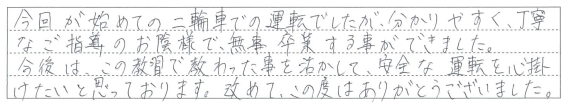 今回が始めての二輪車での運転でしたが、分かりやすく、丁寧
なご指導のお陰様で、無事卒業する事ができました。
今後は、この教習で教わった事を活かして、安全な運転を心掛
けたいと思っております。改めて、この度はありがとうございました。